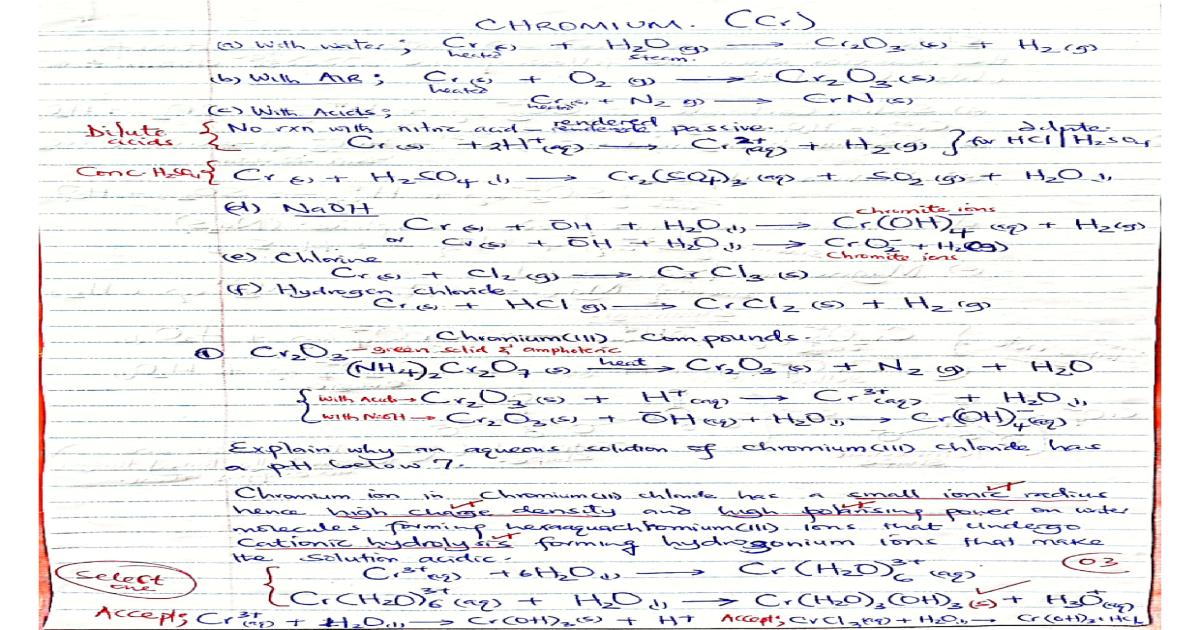 CHROMIUM. (Cr)
(a) With water; Cr(s) + H2O(g) → Cr2O3(s) + H2(g)
heated steam.
(b) With AIR; Cr(s) + O2(g) → Cr2O3(s)
heated
Cr(s) + N2(g) → CrN(s)
heated
(c) With Acids;
Dilute acids { No rxn with nitric acid – rendered passive.
Cr(s) + 2H+(aq) → Cr2+(aq) + H2(g) } for dilute HCl/H2SO4
Conc H2SO4 { Cr(s) + H2SO4(l) → Cr2(SO4)3(aq) + SO2(g) + H2O(l)
(d) NaOH
chromite ions
Cr(s) + OH- + H2O(l) → Cr(OH)4-(aq) + H2(g)
or Cr(s) + OH- + H2O(l) → CrO2- + H2(g)
Chromite ions
(e) Chlorine
Cr(s) + Cl2(g) → CrCl3(s)
(f) Hydrogen chloride
Cr(s) + HCl(g) → CrCl2(s) + H2(g)
Chromium(III) Compounds.
① Cr2O3 – green solid & amphoteric
(NH4)2Cr2O7(s) heat → Cr2O3(s) + N2(g) + H2O
{ with Acid → Cr2O3(s) + H+(aq) → Cr3+(aq) + H2O(l)
with NaOH → Cr2O3(s) + OH-(aq) + H2O(l) → Cr(OH)4-(aq)
Explain why an aqueous solution of chromium(III) chloride has
a pH below 7.
Chromium ion in Chromium(III) chloride has a small ionic radius
hence high charge density and high polarising power on water
molecules forming hexaaquachromium(III) ions that undergo
Cationic hydrolysis forming hydroxonium ions that make
the solution acidic.
03
Select one { Cr3+(aq) + 6H2O(l) → Cr(H2O)6 3+(aq)
Cr(H2O)6 3+(aq) + H2O(l) → Cr(H2O)3(OH)3(s) + H3O+(aq)
Accept; Cr3+(aq) + H2O(l) → Cr(OH)3(s) + H+ Accept; CrCl3(aq) + H2O(l) → Cr(OH)3 + HCl